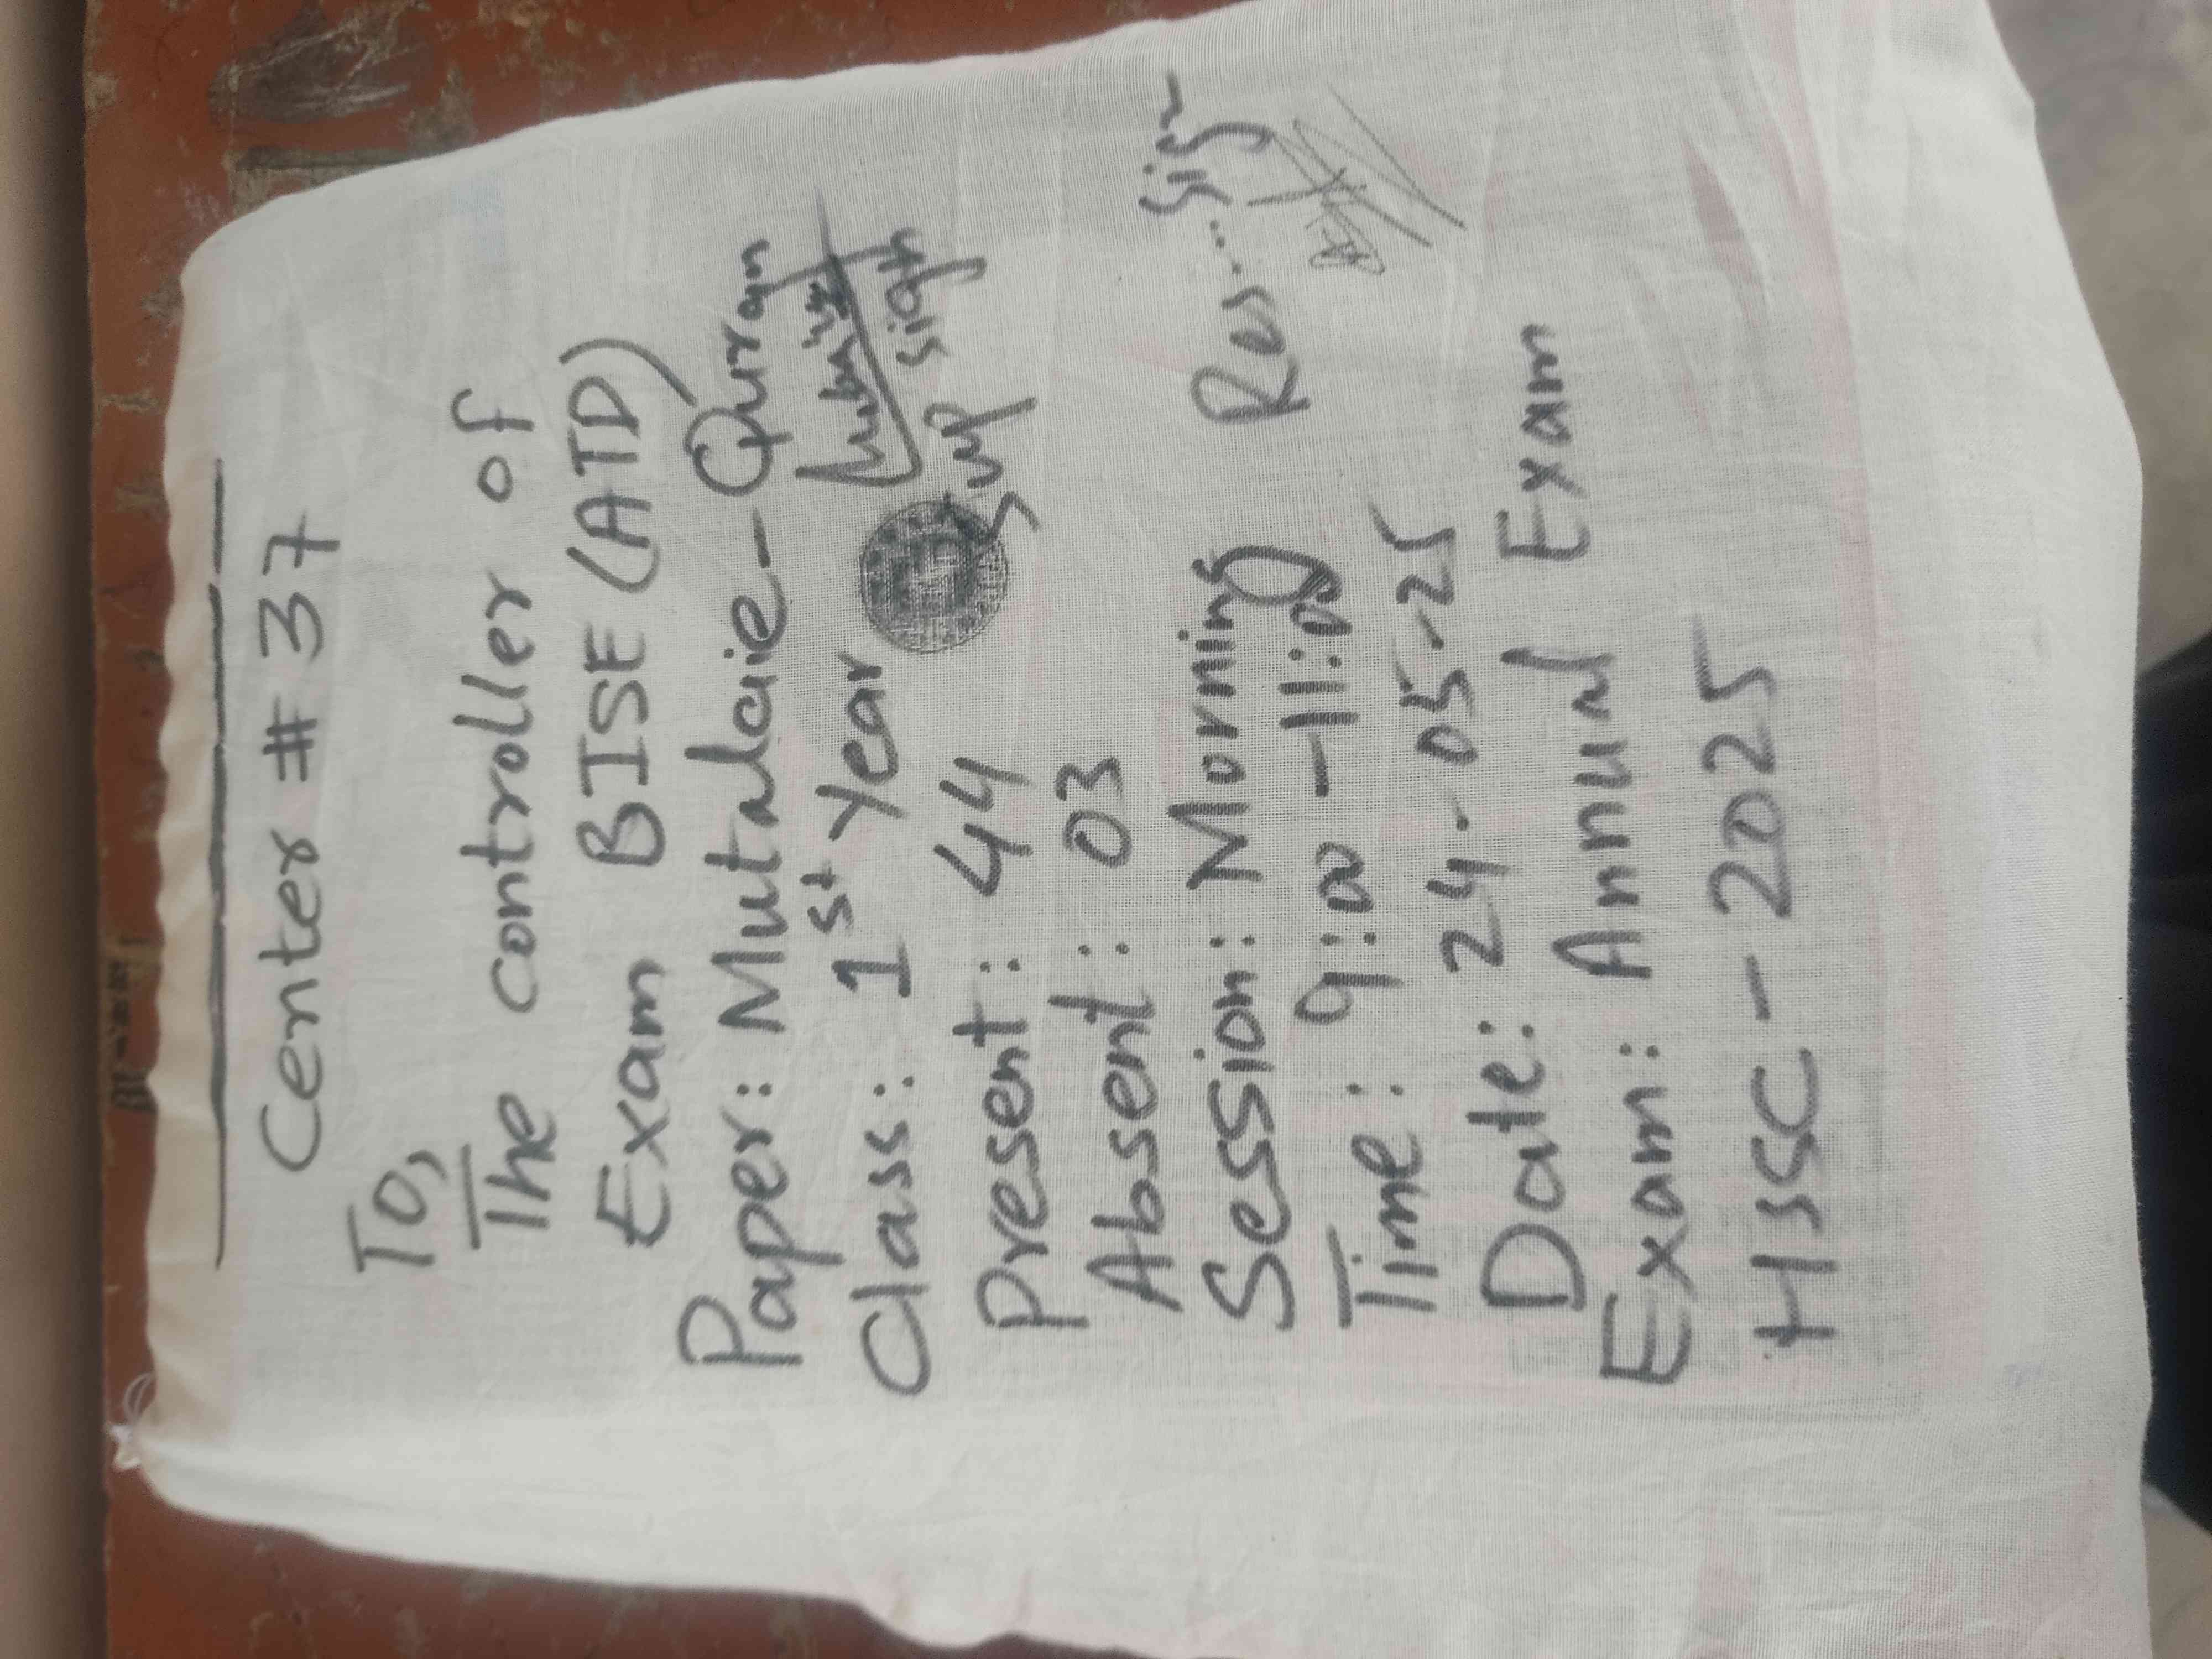 Center # 37
To,
The controller of
Exam BISE (ATD)
Paper: Mutalaie-Quran
Class: 1st Year
Sup sign
Present: 44
Absent: 03
Session: Morning Res... Sign
Time: 9:00 - 11:00
Date: 24-05-25
Exam: Annual Exam
HSSC - 2025